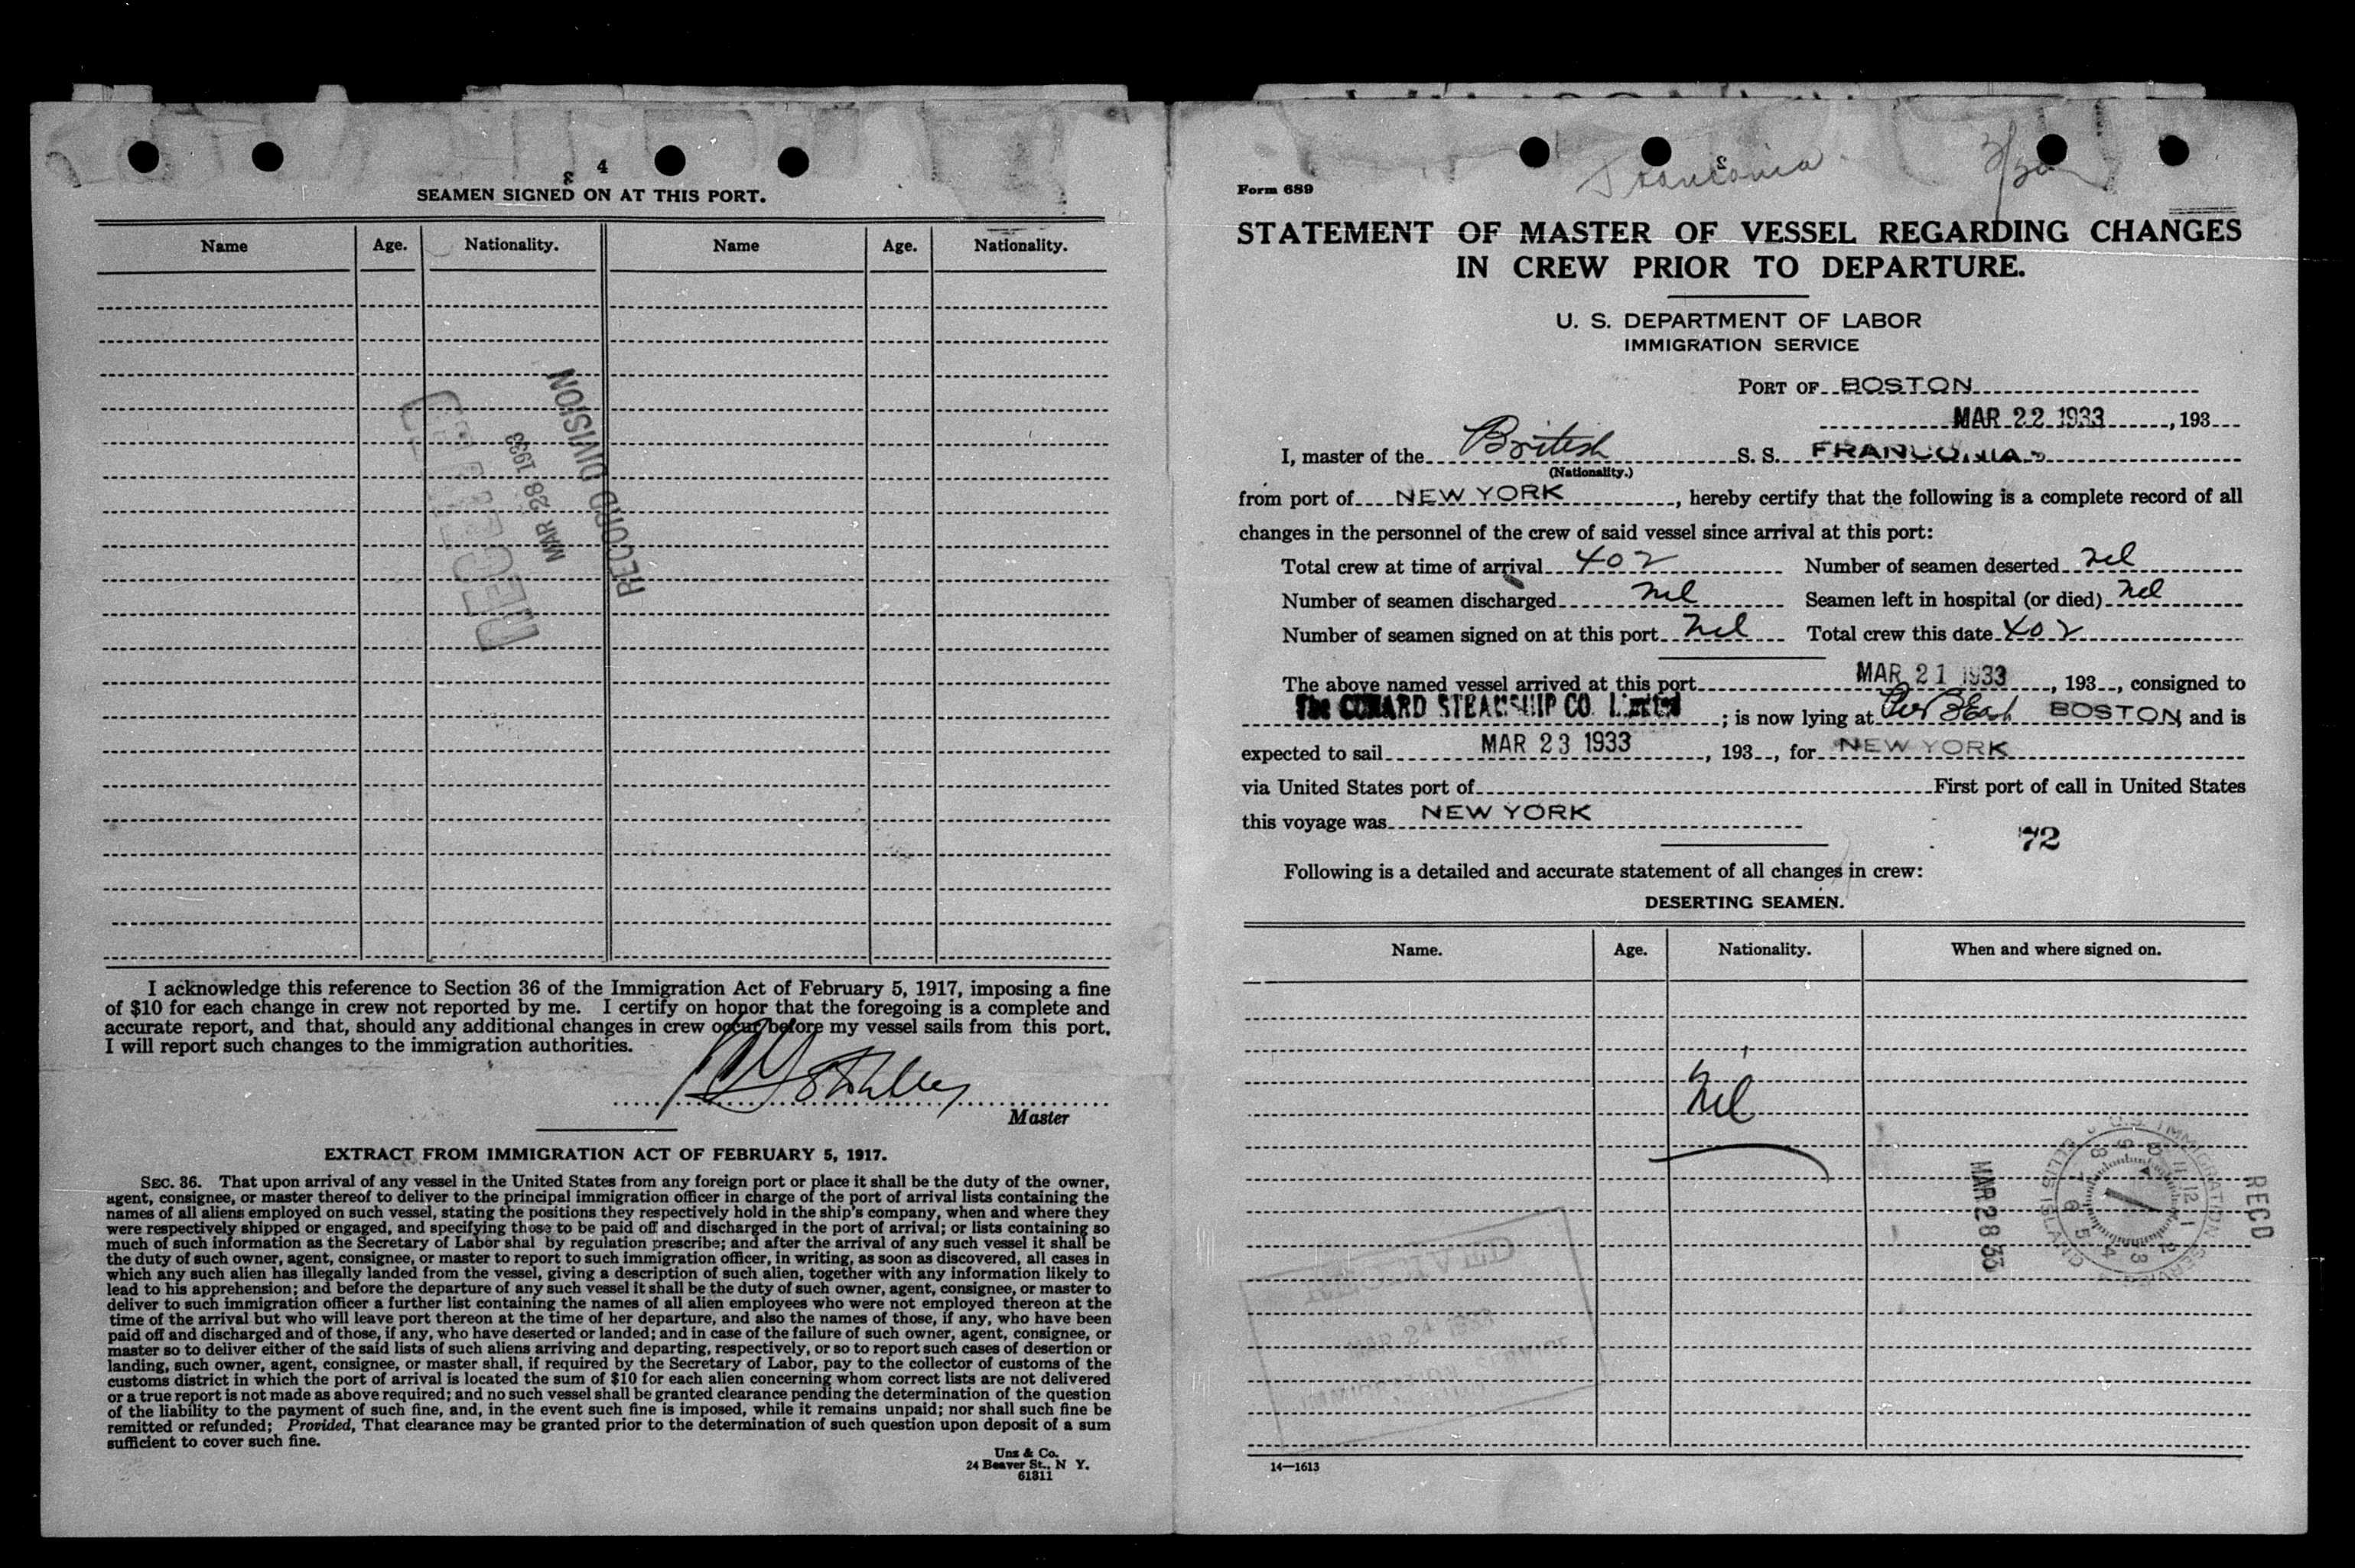 4
SEAMEN SIGNED ON AT THIS PORT.
Name Age. Nationality. Name Age. Nationality.
RECORD DIVISION
MAR 28 1933
I acknowledge this reference to Section 36 of the Immigration Act of February 5, 1917, imposing a fine
of $10 for each change in crew not reported by me. I certify on honor that the foregoing is a complete and
accurate report, and that, should any additional changes in crew occur before my vessel sails from this port,
I will report such changes to the immigration authorities.
Master
EXTRACT FROM IMMIGRATION ACT OF FEBRUARY 5, 1917.
SEC. 36. That upon arrival of any vessel in the United States from any foreign port or place it shall be the duty of the owner,
agent, consignee, or master thereof to deliver to the principal immigration officer in charge of the port of arrival lists containing the
names of all aliens employed on such vessel, stating the positions they respectively hold in the ship's company, when and where they
were respectively shipped or engaged, and specifying those to be paid off and discharged in the port of arrival; or lists containing so
much of such information as the Secretary of Labor shal by regulation prescribe; and after the arrival of any such vessel it shall be
the duty of such owner, agent, consignee, or master to report to such immigration officer, in writing, as soon as discovered, all cases in
which any such alien has illegally landed from the vessel, giving a description of such alien, together with any information likely to
lead to his apprehension; and before the departure of any such vessel it shall be the duty of such owner, agent, consignee, or master to
deliver to such immigration officer a further list containing the names of all alien employees who were not employed thereon at the
time of the arrival but who will leave port thereon at the time of her departure, and also the names of those, if any, who have been
paid off and discharged and of those, if any, who have deserted or landed; and in case of the failure of such owner, agent, consignee, or
master so to deliver either of the said lists of such aliens arriving and departing, respectively, or so to report such cases of desertion or
landing, such owner, agent, consignee, or master shall, if required by the Secretary of Labor, pay to the collector of customs of the
customs district in which the port of arrival is located the sum of $10 for each alien concerning whom correct lists are not delivered
or a true report is not made as above required; and no such vessel shall be granted clearance pending the determination of the question
of the liability to the payment of such fine, and, in the event such fine is imposed, while it remains unpaid; nor shall such fine be
remitted or refunded; Provided, That clearance may be granted prior to the determination of such question upon deposit of a sum
sufficient to cover such fine.
Unz & Co.
24 Beaver St., N Y.
61311
Franconia 3/30
Form 689
STATEMENT OF MASTER OF VESSEL REGARDING CHANGES
IN CREW PRIOR TO DEPARTURE.
U. S. DEPARTMENT OF LABOR
IMMIGRATION SERVICE
PORT OF BOSTON
MAR 22 1933, 193
I, master of the British S. S. FRANCONIA
(Nationality.)
from port of NEW YORK, hereby certify that the following is a complete record of all
changes in the personnel of the crew of said vessel since arrival at this port:
Total crew at time of arrival 402 Number of seamen deserted nil
Number of seamen discharged nil Seamen left in hospital (or died) nil
Number of seamen signed on at this port nil Total crew this date 402
The above named vessel arrived at this port MAR 21 1933, 193, consigned to
The CUNARD STEAMSHIP CO. Limited; is now lying at BOSTON, and is
expected to sail MAR 23 1933, 193, for NEW YORK
via United States port of First port of call in United States
this voyage was NEW YORK
72
Following is a detailed and accurate statement of all changes in crew:
DESERTING SEAMEN.
Name. Age. Nationality. When and where signed on.
Nil
RECD
U.S. IMMIGRATION SERVICE
ELLIS ISLAND
12 1 2 3 4 5 6 7 8 9 10 11
MAR 28 33
MAR 24 1933
IMMIGRATION SERVICE
14—1613